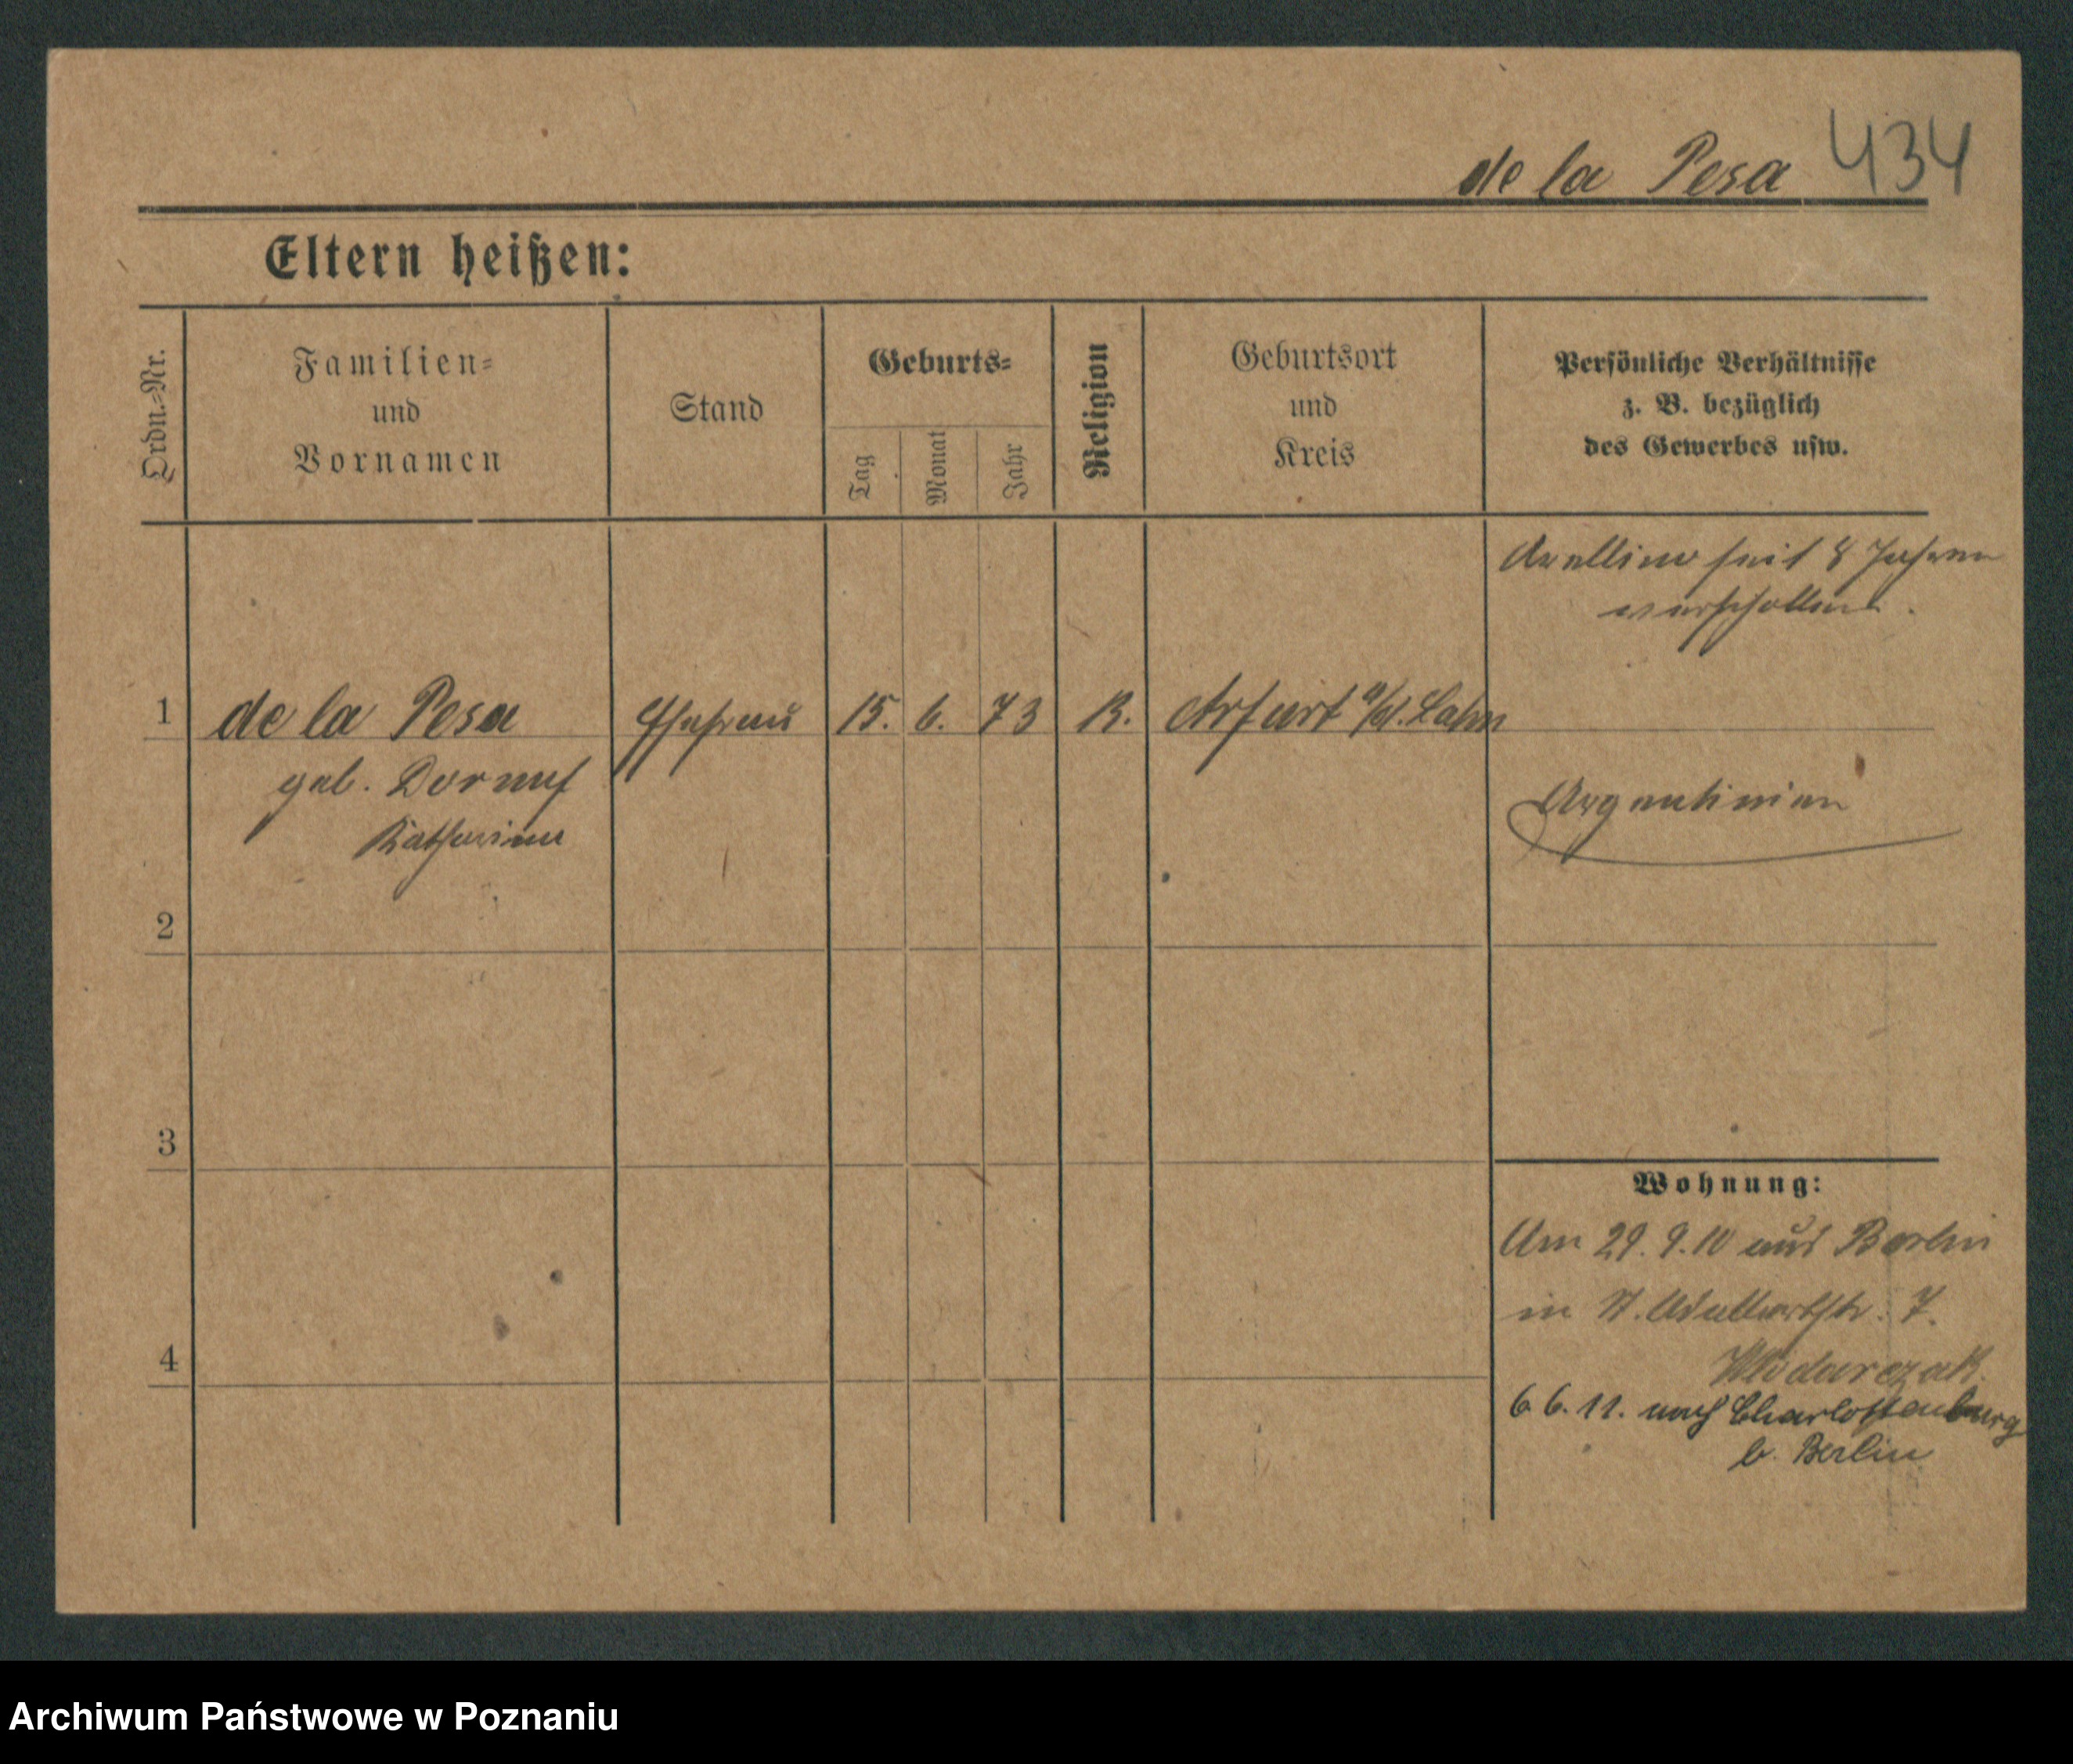 de la Pesa 434
Eltern heißen:
Ordn.-Nr.
Familien=
und
Vornamen
Stand
Geburts=
Tag
Monat
Jahr
Religion
Geburtsort
und
Kreis
Persönliche Verhältnisse
z. B. bezüglich
des Gewerbes usw.
seit 8 Jahren
verschollen.
1 de la Pesa Ehefrau 15. 6. 73 K. Arfurt a/d. Lahn
geb. Dornuf
Katharina
Argentinien
2
3
Wohnung:
Am 29. 9. 10 aus Berlin
in St. Adalbertstr. 7.
Wlodarczak.
4
6. 6. 11. nach Charlottenburg
b. Berlin
Archiwum Państwowe w Poznaniu